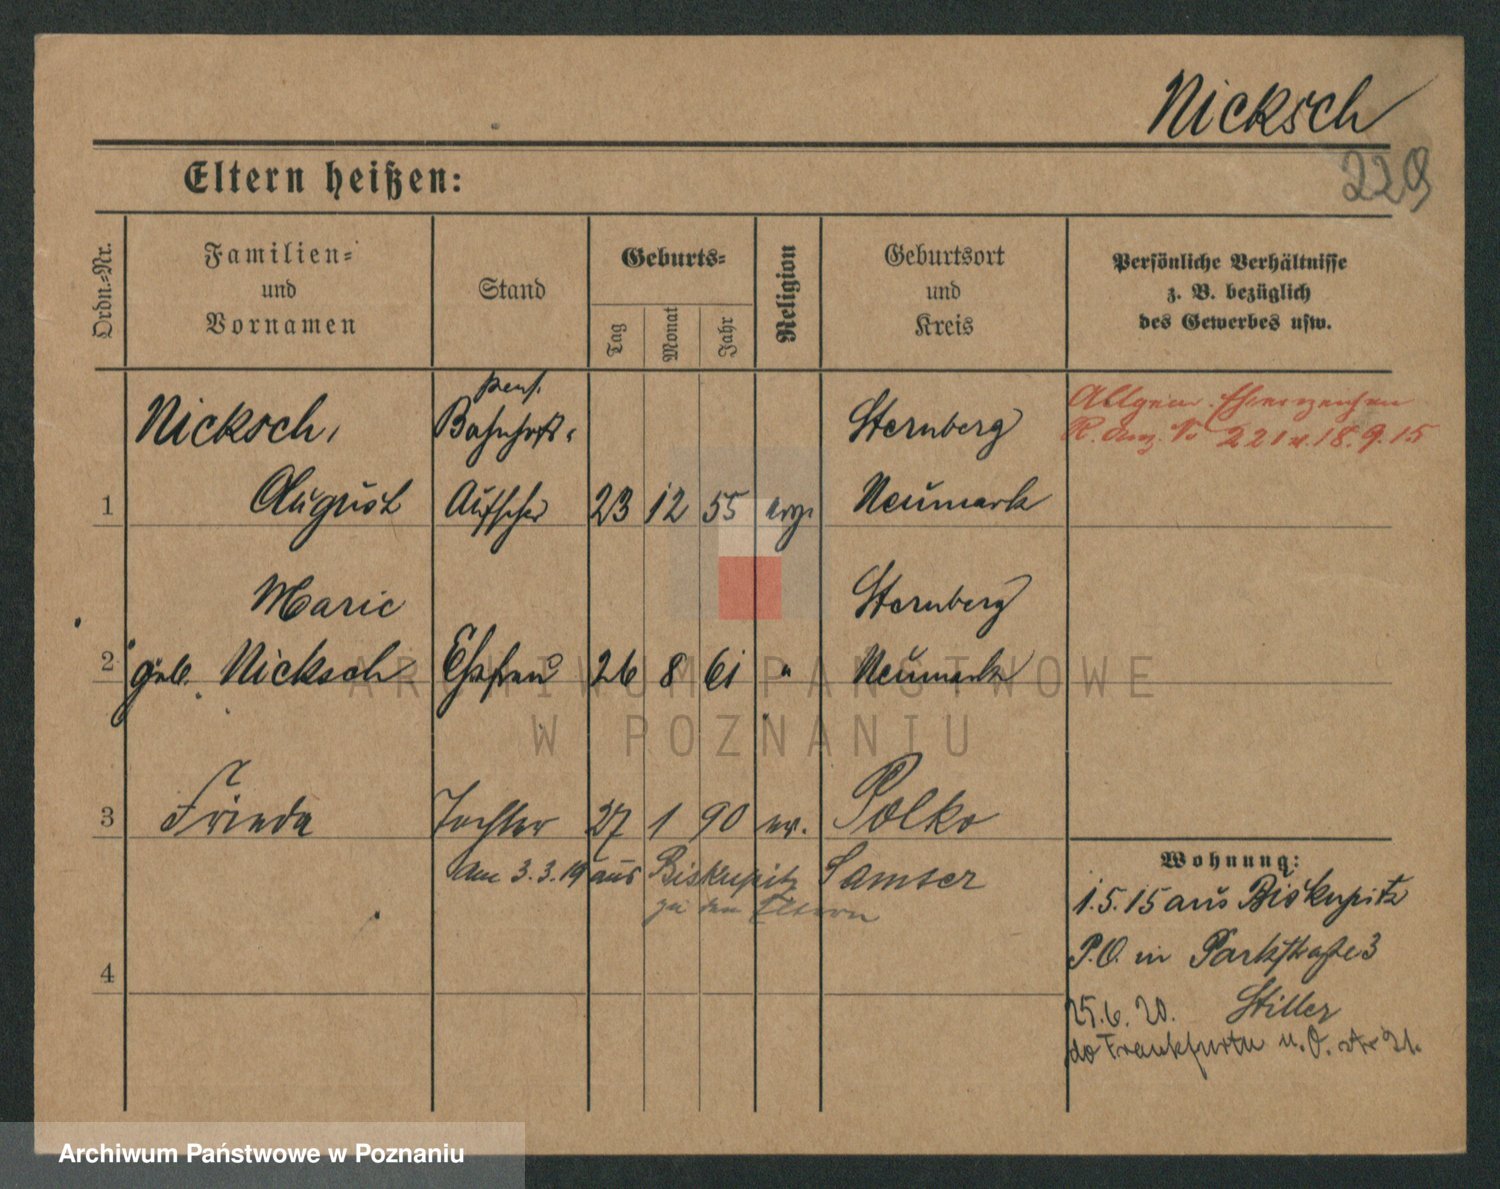 Nicksch
229
Eltern heißen:
Ordn.-Nr.
Familien-
und
Vornamen
Stand
Geburts-
Tag
Monat
Jahr
Religion
Geburtsort
und
Kreis
Persönliche Verhältnisse
z. B. bezüglich
des Gewerbes usw.
pens.
Nicksch, Bahnhofs- Sternberg
1 August Aufseher 23 12 55 evg. Neumark
Allgem. Ehrenzeichen
R. Anz. No 221 v. 18.9.15
Marie Sternberg
2 geb. Nicksch Ehefrau 26 8 61 " Neumark
3 Frieda Tochter 27 1 90 ev. Polko
Am 3.3.19 aus Biskupitz Samter
zu den Eltern
4
Wohnung:
1.5.15 aus Biskupitz
P.O. in Parkstraße 3
Stiller
25.6.20.
do Frankfurtu n.O.
ARCHIWUM PAŃSTWOWE
W POZNANIU
Archiwum Państwowe w Poznaniu